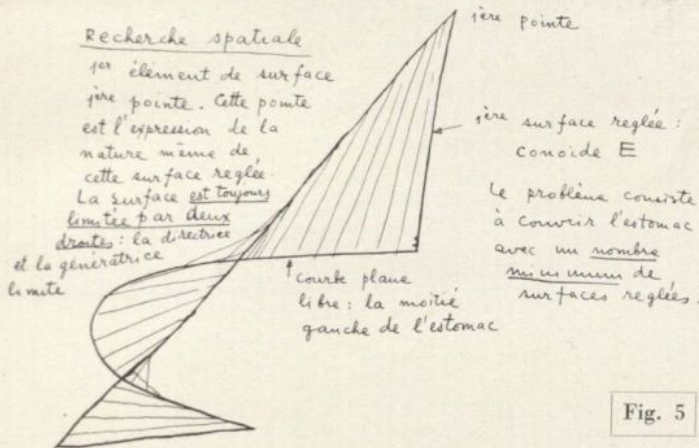 Recherche spatiale
1er élément de surface
1ère pointe. Cette pointe
est l'expression de la
nature même de
cette surface reglée.
La surface est toujours
limitée par deux
droites : la directrice
et la génératrice
limite
1ère pointe
1ère surface reglée :
conoïde E
Le problème consiste
à couvrir l'estomac
avec un nombre
minimum de
surfaces reglées.
courbe plane
libre : la moitié
gauche de l'estomac
Fig. 5